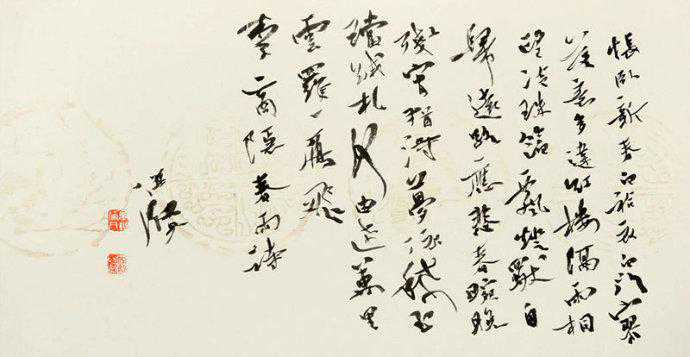 悵臥新春白袷衣白門寥
落意多違紅樓隔雨相
望冷珠箔飄燈獨自
歸遠路應悲春晼晚
殘宵猶得夢依稀玉
璫緘札何由達萬里
雲羅一雁飛
李商隱春雨詩